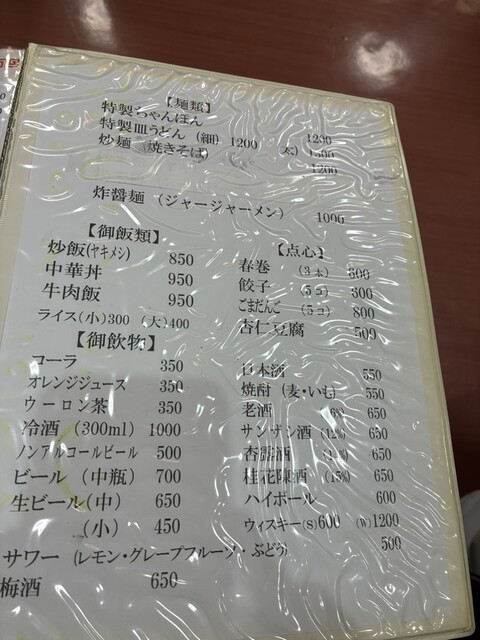 【麺類】
特製ちゃんぽん 1200
特製皿うどん (細) 1200 太) 1300
炒麺 (焼きそば) 1200
炸醤麺 (ジャージャーメン) 1000
【御飯類】
炒飯(ヤキメシ) 850
中華丼 950
牛肉飯 950
ライス(小)300 (大)400
【点心】
春巻 (3本) 600
餃子 (5コ) 600
ごまだんご (5コ) 800
杏仁豆腐 500
【御飲物】
コーラ 350
オレンジジュース 350
ウーロン茶 350
冷酒 (300ml) 1000
ノンアルコールビール 500
ビール (中瓶) 700
生ビール(中) 650
(小) 450
サワー (レモン・グレープフルーツ・ぶどう) 500
梅酒 650
日本酒 550
焼酎 (麦・いも) 550
老酒 650
サンザシ酒 (12%) 650
杏露酒 650
桂花陳酒 (15%) 650
ハイボール 600
ウィスキー(S)600 (W)1200